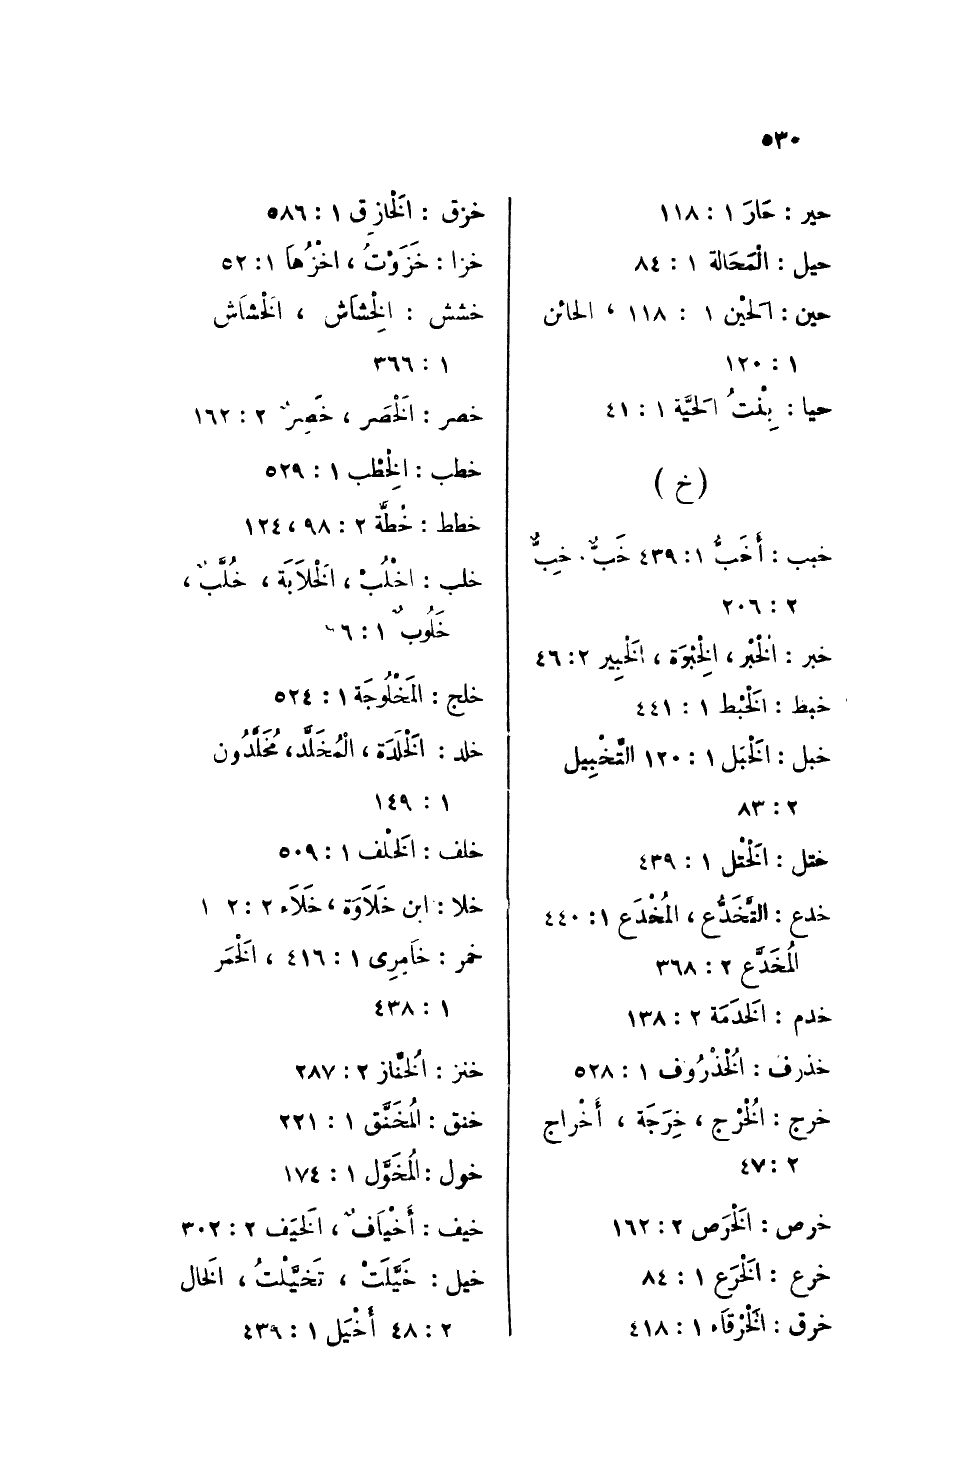 ٥٣٠
حير : حَارَ ١ : ١١٨
حيل : الْمَحَالة ١ : ٨٤
حين : الْحَيْن ١ : ١١٨ ، الحائن
١ : ١٢٠
حيا : بِنْتُ الحَيَّة ١ : ٤١
( خ )
خبب : أَخَبُّ ١ : ٤٣٩ خَبٌّ . خِبٌّ
٢ : ٢٠٦
خبر : الْخَبْر ، الْخِبْرَة ، الْخَبِير ٢ : ٤٦
خبط : الْخَبْط ١ : ٤٤١
خبل : الْخَبَل ١ : ١٢٠ التَّخْبِيل
٢ : ٨٣
ختل : الْخَتْل ١ : ٤٣٩
خدع : التَّخَدُّع ، الْمُخْدَع ١ : ٤٤٠
الْمُخَدَّع ٢ : ٣٦٨
خدم : الْخَدَمَة ٢ : ١٣٨
خذرف : الْخُذْرُوف ١ : ٥٢٨
خرج : الْخُرْج ، خِرَجَة ، أَخْراج
٢ : ٤٧
خرص : الْخَرَص ٢ : ١٦٢
خرع : الْخَرَع ١ : ٨٤
خرق : الْخَرْقَاء ١ : ٤١٨
خزق : الْخَازِق ١ : ٥٨٦
خزا : خَزَوْتُ ، اخْزُهَا ١ : ٥٢
خشش : الْخِشَاش ، الْخَشَاش
١ : ٣٦٦
خصر : الْخَصَر ، خَصِرٌ ٢ : ١٦٢
خطب : الْخِطْب ١ : ٥٢٩
خطط : خُطَّة ٢ : ٩٨ ، ١٢٤
خلب : اخْلُبْ ، الْخَلَابَة ، خُلَّبٌ ،
خَلُوبٌ ١ :
خلج : الْمَخْلُوجَة ١ : ٥٢٤
خلد : الْخَلَدَة ، الْمُخَلَّد ، مُخَلَّدُون
١ : ١٤٩
خلف : الْخَلْف ١ : ٥٠٩
خلا : ابن خَلَاوَة ، خَلَاء ٢ :
خمر : خَامِرِى ١ : ٤١٦ ، الْخَمَر
١ : ٤٣٨
خنز : الْخُنَّاز ٢ : ٢٨٧
خنق : الْمُخَنَّق ١ : ٢٢١
خول : الْمُخَوَّل ١ : ١٧٤
خيف : أَخْيَافٌ ، الْخَيَف ٢ : ٣٠٢
خيل : خَيَّلَتْ ، تَخَيَّلْتُ ، الْخَال
٢ : ٤٨ أَخْيَل ١ : ٤٣٩